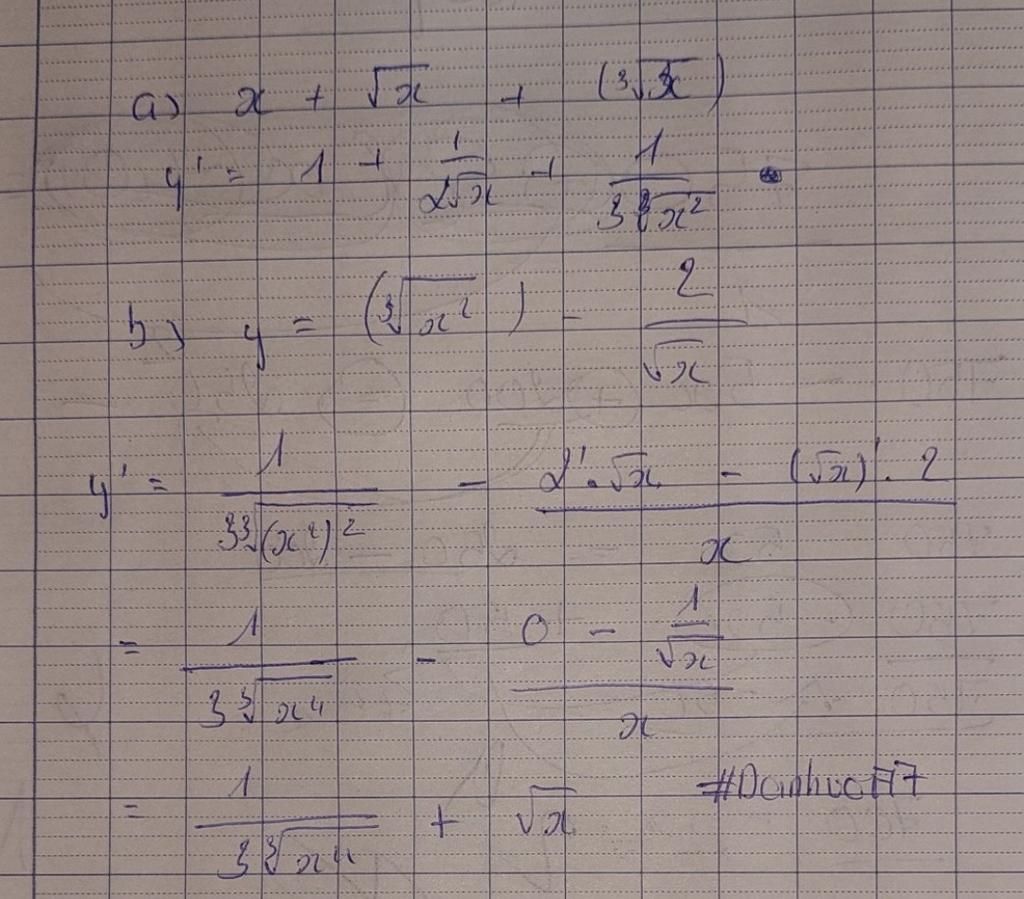 a) x + √x + (³√x)
y' = 1 + 1/(2√x) + 1/(3³√x²)
b) y = (³√x²) - 2/√x
y' = 1/(3³√(x²)²) - (2'.√x - (√x)'.2)/x
= 1/(3³√x⁴) - (0 - 1/√x)/x
= 1/(3³√x⁴) + √x